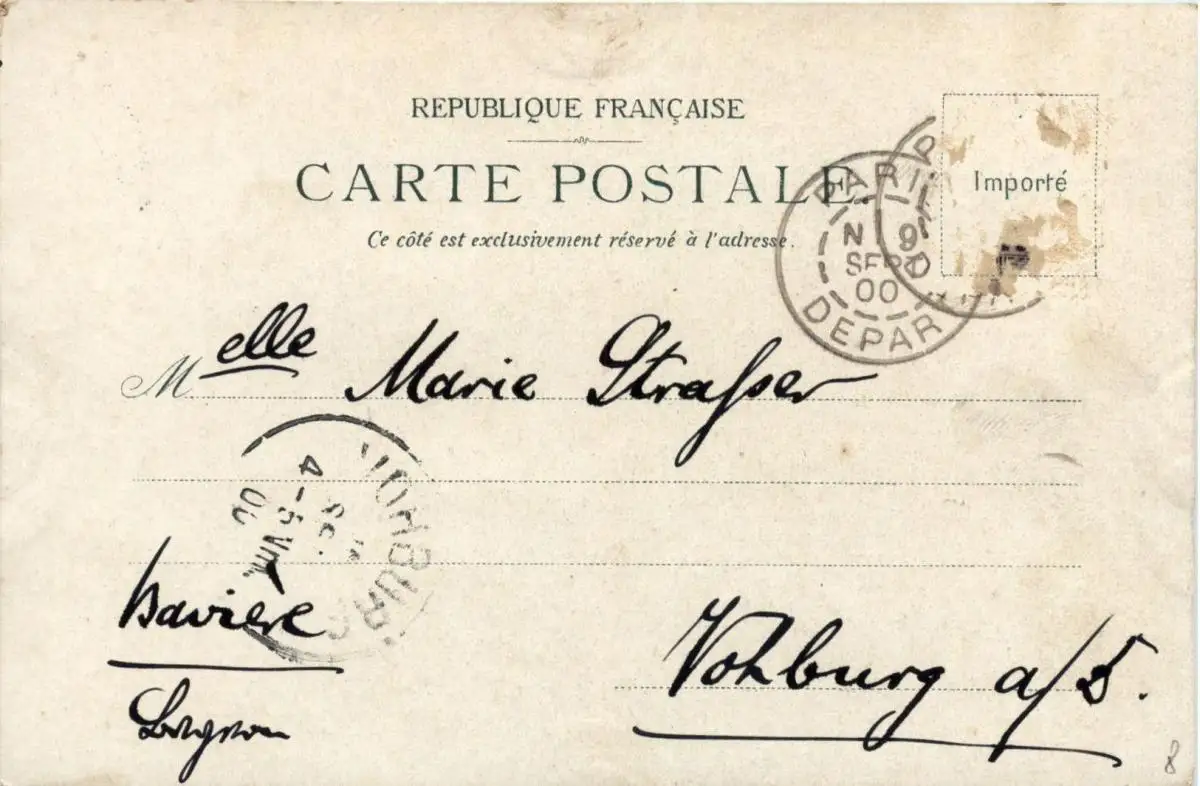 REPUBLIQUE FRANÇAISE
CARTE POSTALE.
Ce côté est exclusivement réservé à l'adresse.
Importé
PARIS
SEPT
00
DEPART
Melle Marie Straßer
4-5
00
VOHBURG
Bavière
Vohburg a/D.
8